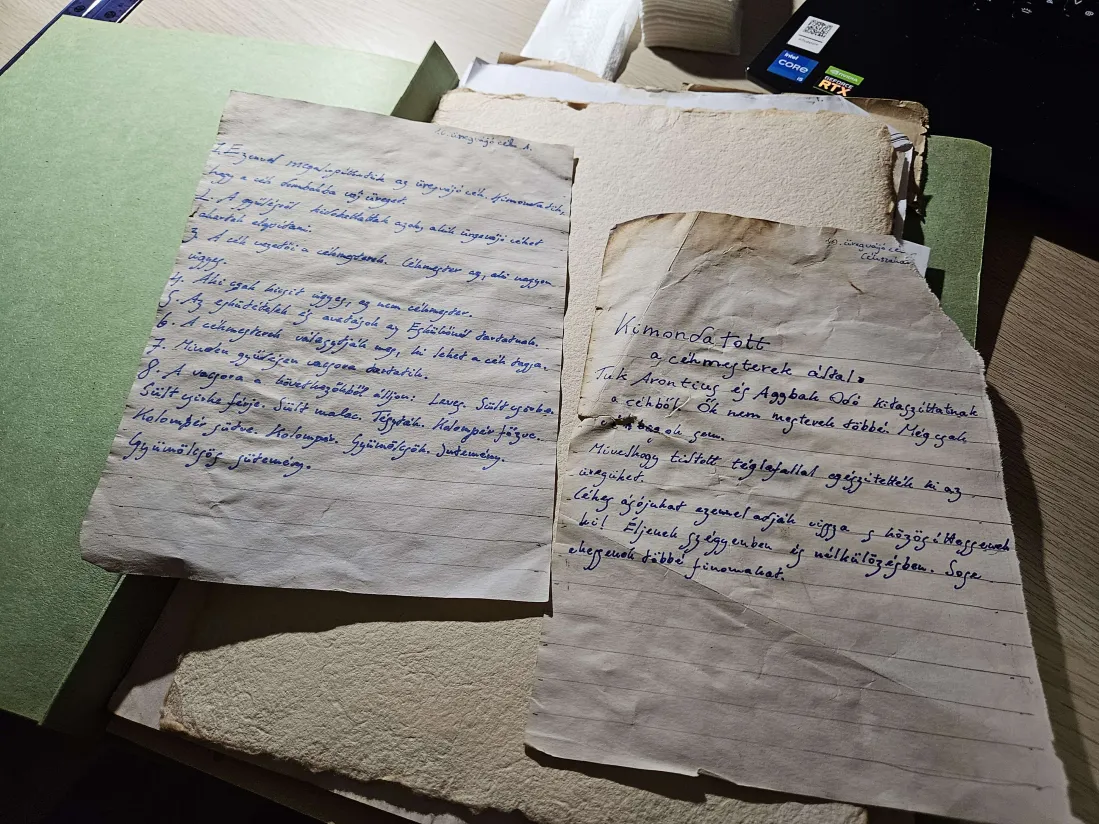 üregvájó céh 1.
1. Ezennel megalapíttatik az üregvájó céh. Kimondatik,
hogy a céh dombokba váj üreget.
2. A gyűlésről kitiltattak azok, akik ürgevájó céhet
akartak alapítani.
3. A céh vezetői a céhmesterek. Céhmester az, aki nagyon
ügyes.
4. Aki csak kicsit ügyes, az nem céhmester.
5. Az eskütételek és avatások az Eskükőnél tartatnak.
6. A céhmesterek válogatják meg, ki lehet a céh tagja.
7. Minden gyűlésen vacsora tartatik.
8. A vacsora a következőkből álljon: Leves. Sült csirke.
Sült csirke fázva. Sült malac. Tészták. Kolompér főzve.
Kolompér sütve. Kolompér. Gyümölcsök. Sütemény.
Gyümölcsös sütemény.
üregvájó céh
Kimondatott
a céhmesterek által.
Tuk Arontius és Aggbak Odó kitaszíttatnak
a céhből. Ők nem mesterek többé. Még csak
ok sem.
Mivelhogy tiltott téglafallal egészítették ki az
üregüket.
Céhes ásójukat ezennel adják vissza s közösíttessenek
ki! Éljenek szégyenben és nélkülözésben. Sose
ehessenek többé finomakat.
intel
CORE
i5
NVIDIA
GEFORCE
RTX